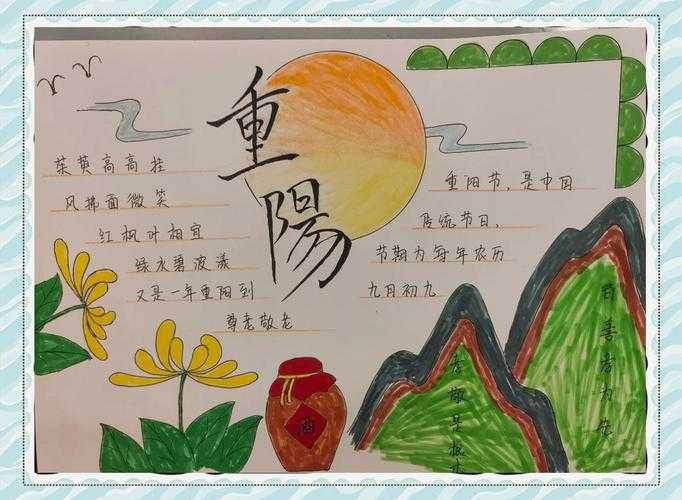 重陽
茱萸高高挂
风拂面微笑
红枫叶相宜
绿水碧波漾
又是一年重阳到
尊老敬老
重阳节,是中国
传统节日,
节期为每年农历
九月初九
酒
百善孝为先
孝敬是根本